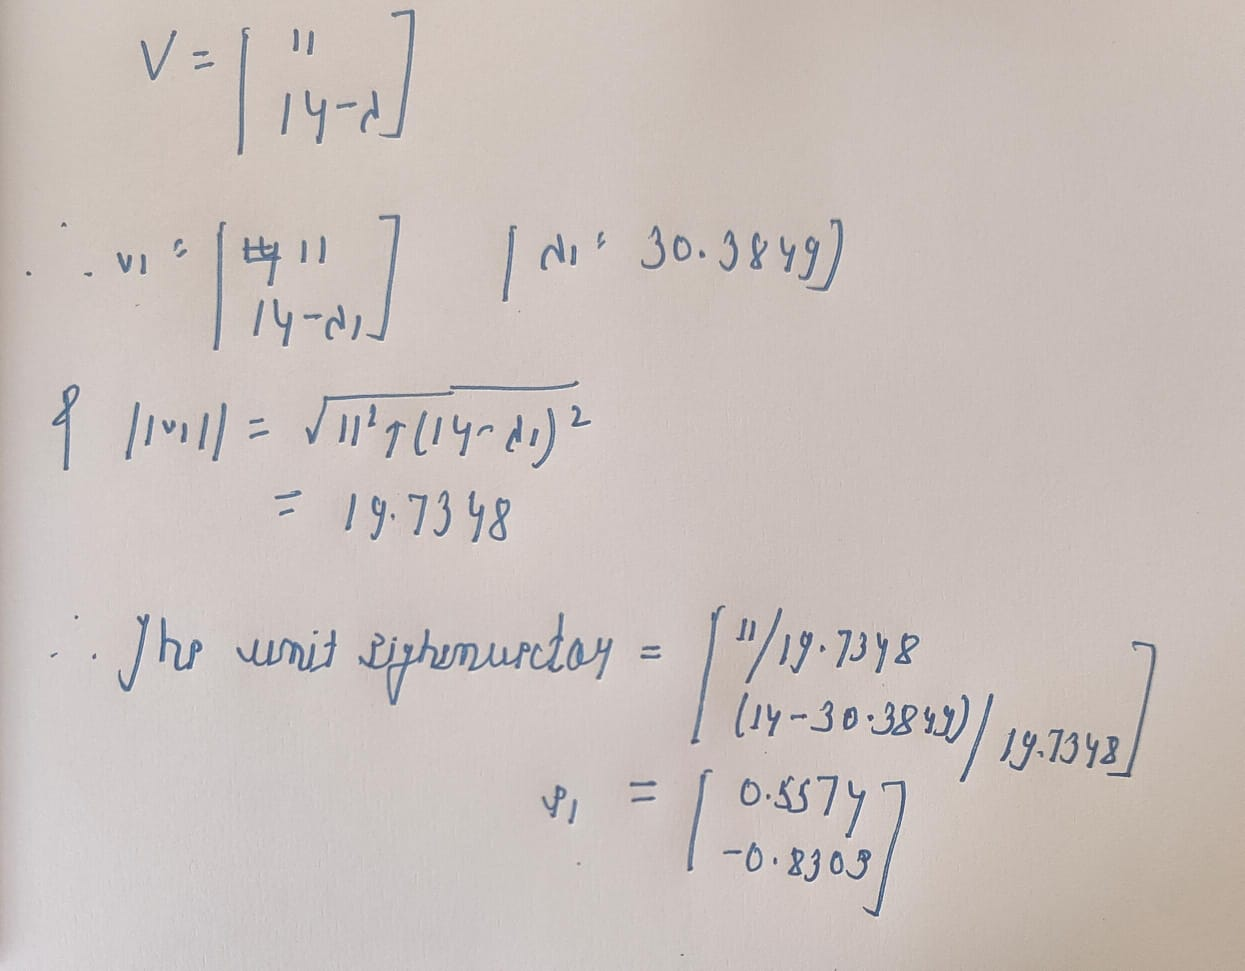 V = [ 11
14-λ ]
∴ v1 = [ 11
14-λ1 ] [ λ1 = 30.3849 ]
& ||v1|| = √11² + (14-λ1)²
= 19.7348
∴ The unit eighenvector = [ 11/19.7348
(14-30.3849)/19.7348 ]
e1 = [ 0.5574
-0.8303 ]